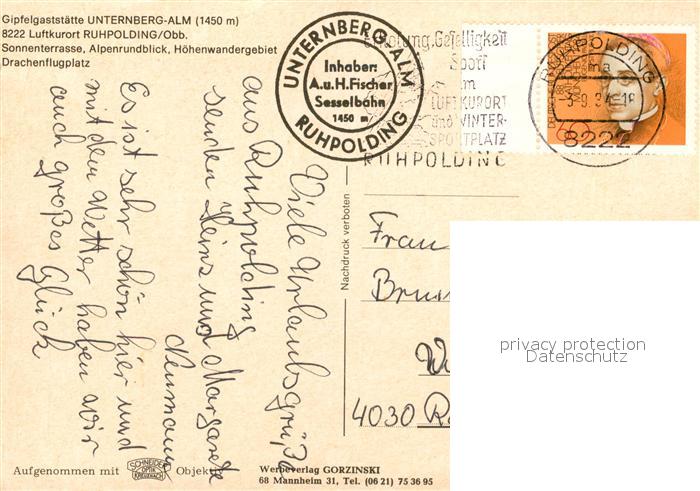 Gipfelgaststätte UNTERNBERG-ALM (1450 m)
8222 Luftkurort RUHPOLDING/Obb.
Sonnenterrasse, Alpenrundblick, Höhenwandergebiet
Drachenflugplatz
UNTERNBERG-ALM
Inhaber:
A.u.H.Fischer
Sesselbahn
1450 m
RUHPOLDING
Erholung, Geselligkeit
Sport
im
LUFTKURORT
und WINTER-
SPORTPLATZ
RUHPOLDING
RUHPOLDING
ma
8222
Viele Urlaubsgrüße
aus Ruhpolding
senden Heins und Margarete
Neumann
Es ist sehr schön hier und
mit dem Wetter haben wir
auch großes Glück
Nachdruck verboten
Frau
4030
privacy protection
Datenschutz
Aufgenommen mit SCHNEIDER OPTIK KREUZNACH Objektiv
Werbeverlag GORZINSKI
68 Mannheim 31, Tel. (06 21) 75 36 95